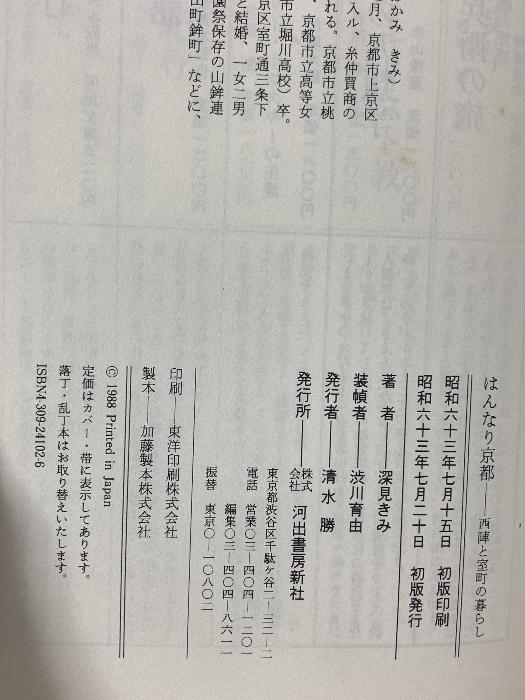 かみ きみ）
月、京都市上京区
入ル、糸仲買商の
れる。京都市立桃
、京都市立高等女
市立堀川高校）卒。
京区室町通三条下
と結婚、一女二男
園祭保存の山鉾連
山町鉾町」などに、
はんなり京都――西陣と室町の暮らし
昭和六十三年七月十五日 初版印刷
昭和六十三年七月二十日 初版発行
著 者――深見きみ
装幀者――渋川育由
発行者――清水 勝
発行所――株式会社 河出書房新社
東京都渋谷区千駄ケ谷二―三二―二
電話 営業〇三―四〇四―一二〇一
編集〇三―四〇四―八六一一
振替 東京〇―一〇八〇二
印刷――東洋印刷株式会社
製本――加藤製本株式会社
© 1988 Printed in Japan
定価はカバー・帯に表示してあります。
落丁・乱丁本はお取り替えいたします。
ISBN4-309-24102-6